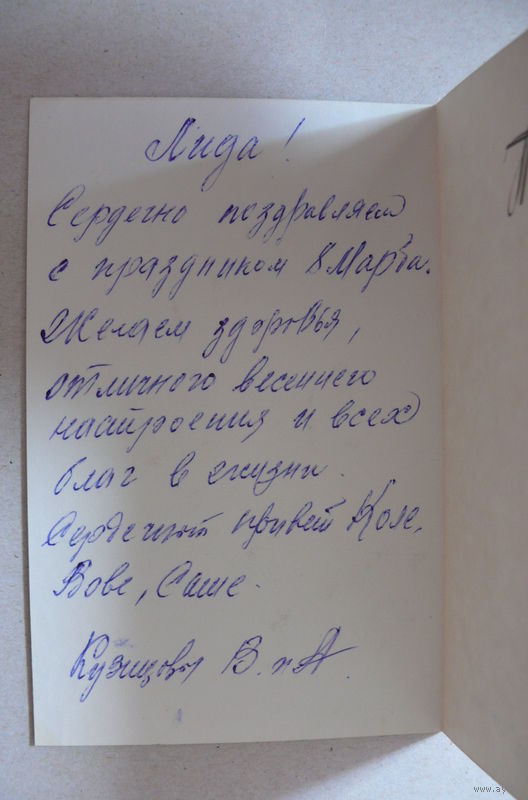 Лида!
Сердечно поздравляем
с праздником 8 Марта.
Желаем здоровья,
отличного весеннего
настроения и всех
благ в жизни.
Сердечный привет Коле,
Вове, Саше.
Кузнецовы В. и А.